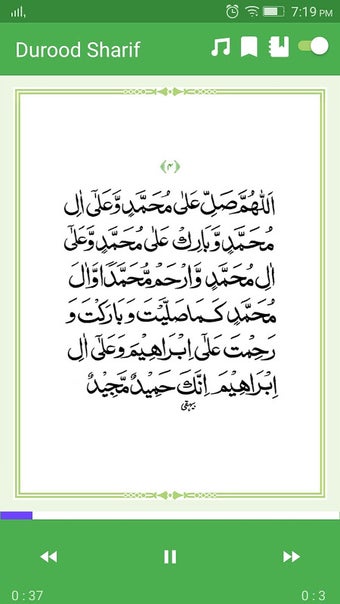 7:19 PM
Durood Sharif
﴿۴﴾
اَللّٰهُمَّ صَلِّ عَلٰى مُحَمَّدٍ وَّعَلٰٓى اٰلِ
مُحَمَّدٍ وَّبَارِكْ عَلٰى مُحَمَّدٍ وَّعَلٰٓى
اٰلِ مُحَمَّدٍ وَّارْحَمْ مُحَمَّدًا وَّاٰلَ
مُحَمَّدٍ كَمَا صَلَّيْتَ وَبَارَكْتَ وَ
رَحِمْتَ عَلٰٓى اِبْرَاهِيْمَ وَعَلٰٓى اٰلِ
اِبْرَاهِيْمَ اِنَّكَ حَمِيْدٌ مَّجِيْدٌ
بيهقى
0 : 37
0 : 3